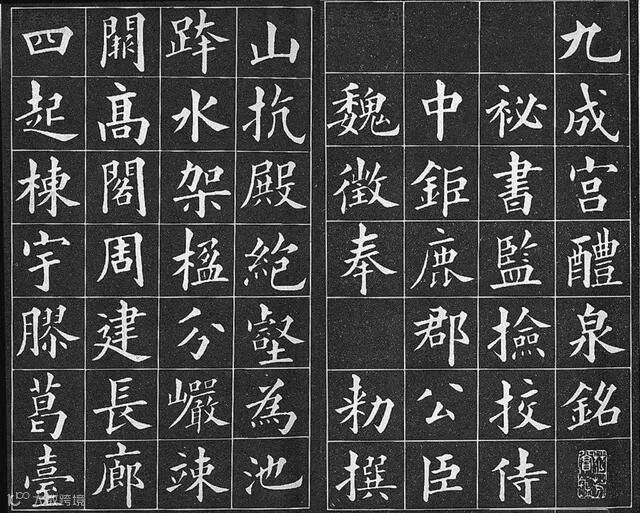 九成宮醴泉銘
祕書監撿挍侍
中鉅鹿郡公臣
魏徵奉 勑撰
山抗殿絶壑為池
跨水架楹分巖竦
闕髙閣周建長廊
四起棟宇膠葛臺
大数跨境